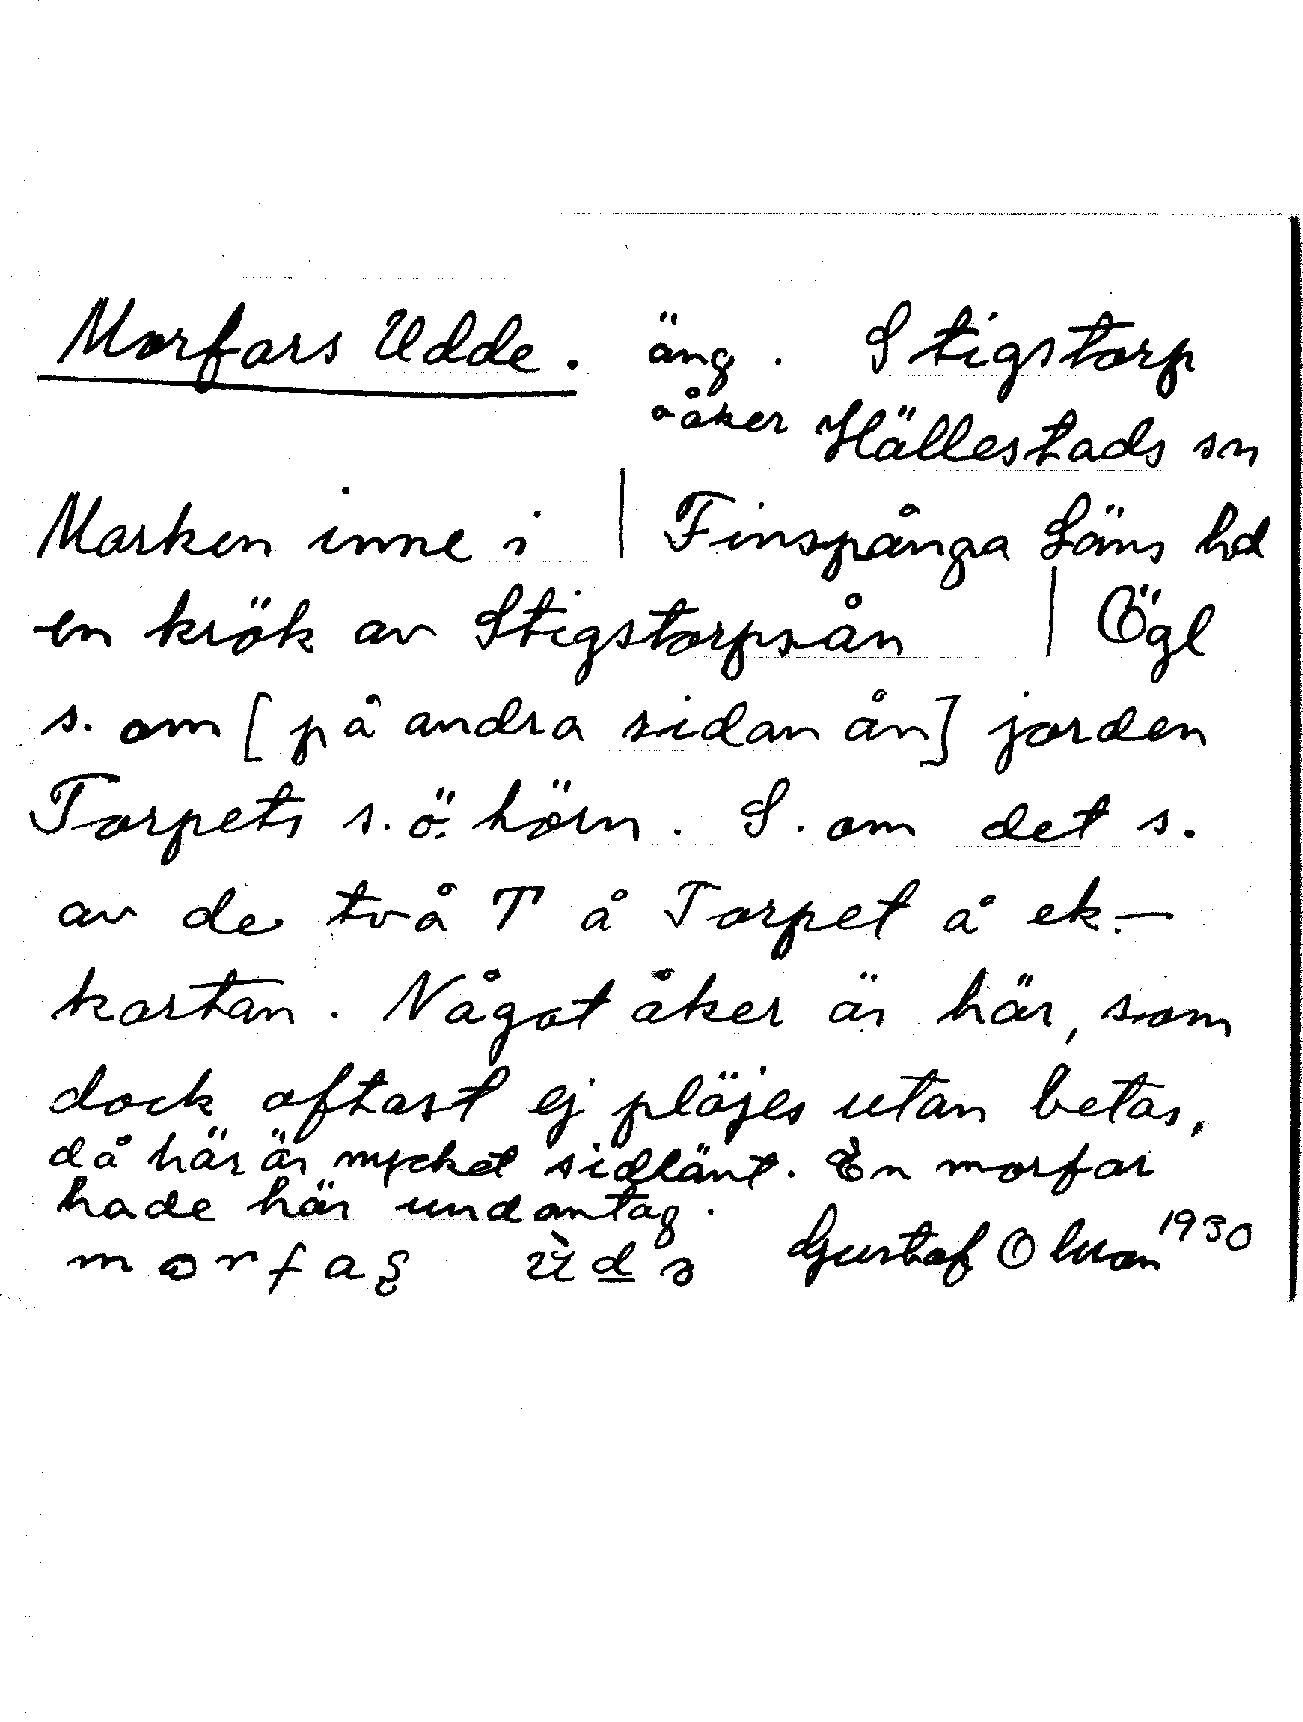 Morfars Udde. äng. Stigstorp
o åker Hällestads sn
Marken inne i | Finspånga Läns hd
en krök av Stigstorpsån | Ögl
s. om [på andra sidan ån] jorden
Torpets s.ö. hörn. S. om det s.
av de två T å Torpet å ek.-
kartan. Något åker är här, som
dock oftast ej plöjes utan betas,
då här är mycket sidlänt. En morfar
hade här undantag.
morfaʂ ùdə Gustaf Olson 1930